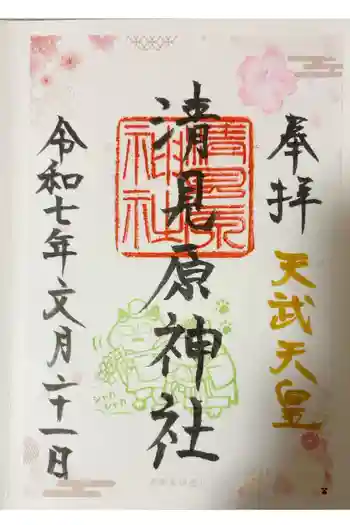 奉拝
天武天皇
清見原神社
清見原神社
シャカ
シャカ
令和七年文月二十一日